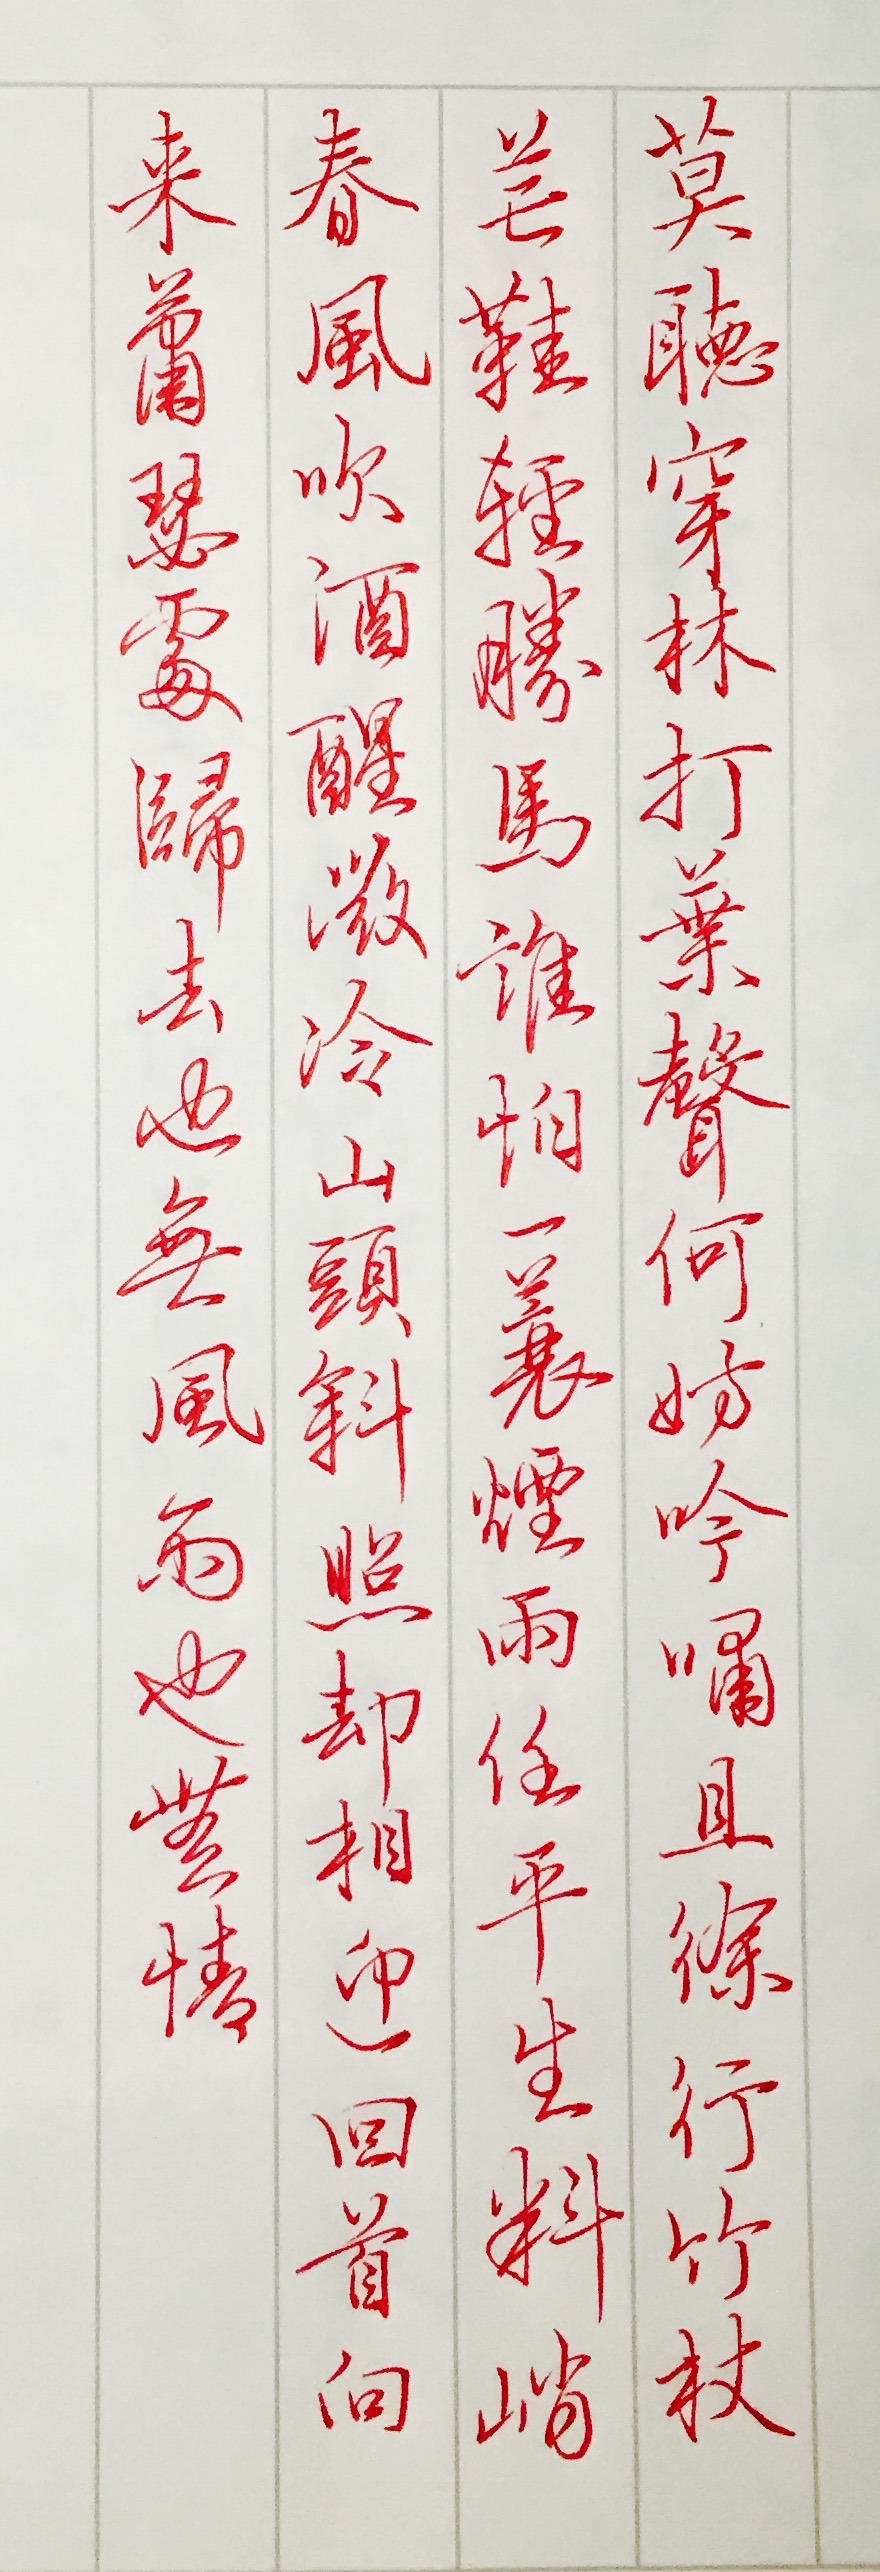 莫聽穿林打葉聲何妨吟嘯且徐行竹杖
芒鞋輕勝馬誰怕一蓑煙雨任平生料峭
春風吹酒醒微冷山頭斜照却相迎回首向
来蕭瑟處歸去也無風雨也無情